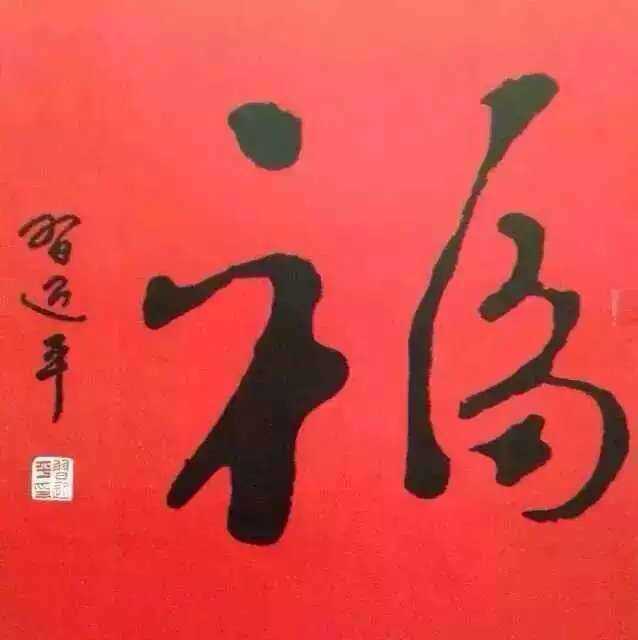 福
習近平